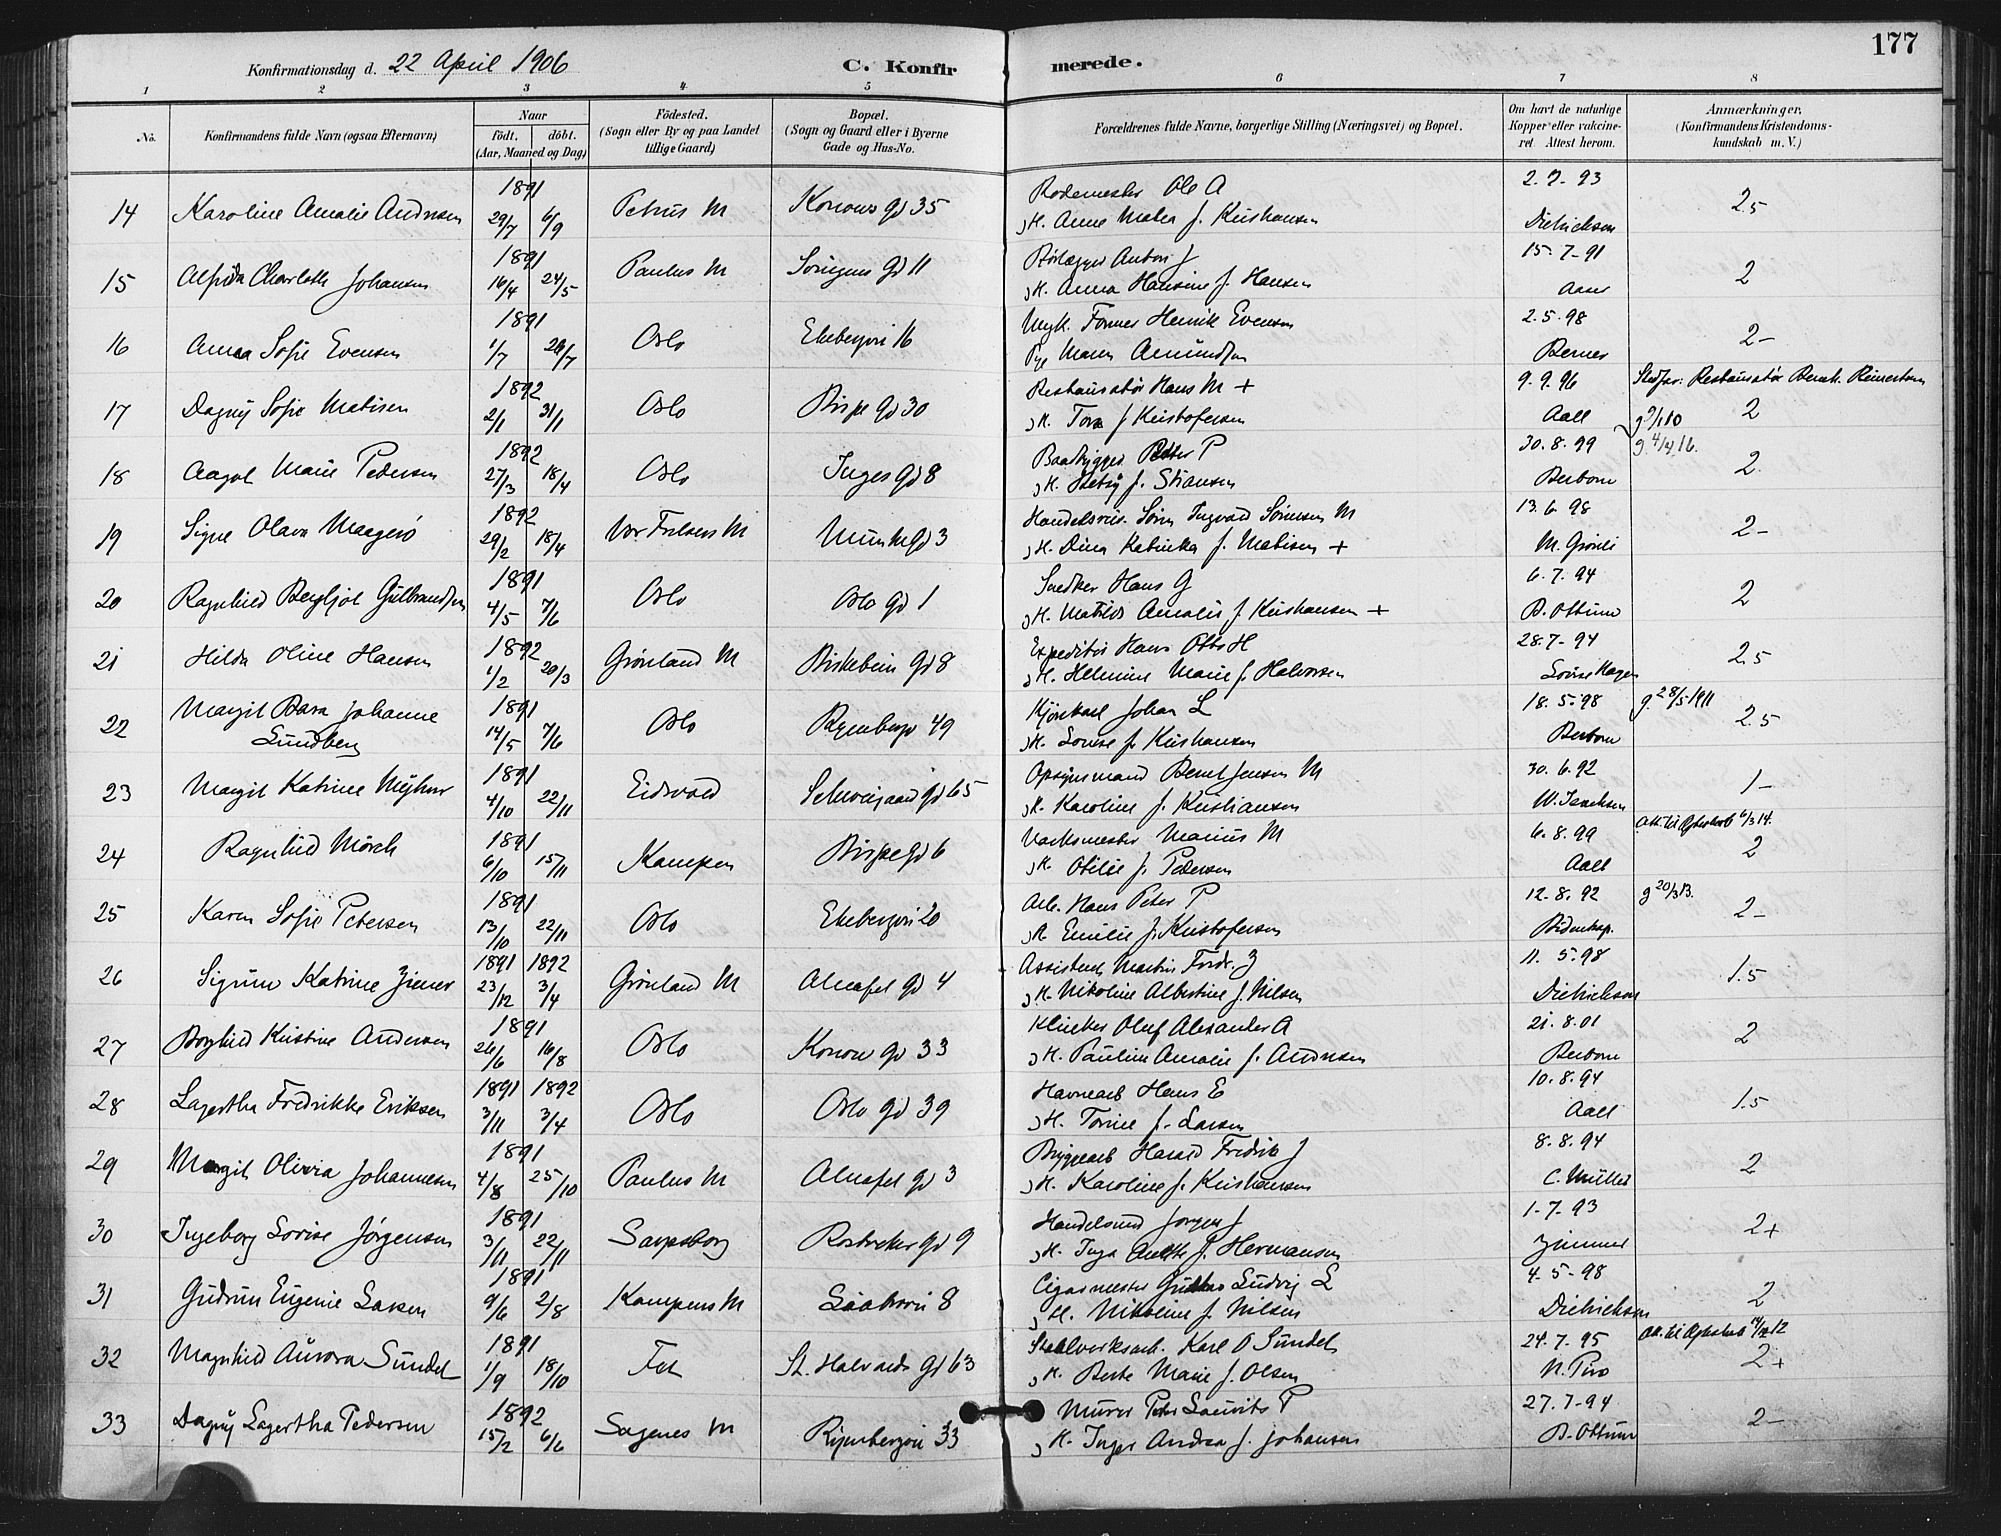 Konfirmationsdag d. 22 April 1906 C. Konfir merede. 177
1 2 3 4 5 6 7 8
No. Konfirmandens fulde Navn (ogsaa Efternavn) Naar födt. döbt. (Aar, Maaned og Dag) Födested. (Sogn eller By og paa Landet tillige Gaard) Bopæl. (Sogn og Gaard eller i Byerne Gade og Hus-No. Forældrenes fulde Navne, borgerlige Stilling (Næringsvei) og Bopæl. Om havt de naturlige Kopper eller vakcineret. Attest herom. Anmærkninger, (Konfirmandens Kristendomskundskab m. V.)
1891 Rodemester Ole A 2.7-93
14 Karoline Amalie Andresen 29/7 6/9 Petrus M Konows gd 35 H. Anne Matea f. Kristiansen Dietrichson 2.5
1891 Rørlægger Anton J 15-7-91
15 Charlotte Johansen 16/4 24/5 Paulus M Sörligens gd 11 H. Anna Hansine f. Hansen Aaser 2
1891 Ugk. Former Henrik Evensen 2.5.98
16 Anna Sofie Evensen 1/7 26/7 Oslo Ekebergvei 16 Pge Maren Amundsen Berner 2-
1892 Restauratør Hans M + 9.9.96 Stedfar: Restauratør Bernh. Reinertsen
17 Dagny Sofie Matisen 2/1 31/1 Oslo Bispe gd 30 H. Tora f Kristofersen Aall 2
1892 Baadbygger Petter P 30.8.99 g 4/4 16.
18 Aagot Marie Pedersen 27/3 18/4 Oslo Inges gd 8 H. Betsy f. Stiansen Berbom 2
1892 Handelsreis. Sören Ingvard Sörensen M 13.6.98
19 Signe Olava Magerö 29/2 18/4 Vor Frelsers M Munke gd 3 H. Dina Katinka f. Matisen + M. Grönli 2-
1891 Snedker Hans G 6.7.94
20 Ragnhild Bergljot Gulbrandsen 4/5 7/6 Oslo Oslo gd 1 H. Matilde Amalie f. Kristiansen + B. Ottum 2
1892 Expeditör Hans Otto H 28.7-94
21 Hilda Oline Hansen 1/2 20/3 Grönland M Birkebein gd 8 H. Helmine Marie f. Halvorsen Lovise Hagen 2.5
Margit Bara Johanne 1891 Kjörekarl Johan L 18.5-98 g. 28/5-1911
22 Lundberg 14/5 7/6 Oslo Ryenbergv 49 H. Lovise f. Kristiansen Berbom 2.5
1891 Opsynsmand Bernt Jensen M 30.6.92
23 Margit Katrine Myhrer 4/10 22/11 Eidsvold Schweigaard gd 65 H. Karoline f. Kristiansen W. Isachsen 1-
1891 Værksmester Marius M 6.8.99
24 Ragnhild Mörch 6/10 15/11 Kampen Bispe gd 6 H. Otilie f. Pedersen Aall 2
1891 Arb. Hans Peter P 12-8.92 g 20/3 13.
25 Karen Sofie Petersen 13/10 22/11 Oslo Ekebergvei 20 H. Emilie f. Kristofersen Bidenkap. 2-
1891 1892 Assistent Martin Fredr. Z 11.5-98
26 Sigrun Katrine Ziener 23/12 3/4 Grönland M Alnafet gd 4 H. Nikoline Albertine f. Nilsen Dietrichson 1.5
1891 Klinker Oluf Alexander A 21.8.01
27 Borghild Kristine Andersen 26/6 16/8 Oslo Konow gd 33 H. Pauline Amalie f. Andresen Berbom 2
1891 1892 Havnearb Hans E 10.8.94
28 Lagertha Fredrikke Eriksen 3/11 3/4 Oslo Oslo gd 39 H. Torine f. Larsen Aall 1.5
1891 Bryggearb Harald Fredrik J 8.8.94
29 Margit Olivia Johannesen 4/8 25/10 Paulus M Alnafet gd 3 H. Karoline f. Kristiansen C. Müller 2
1891 Handelsmd Jørgen J 1-7.93
30 Ingeborg Lovise Jørgensen 3/11 22/11 Sarpsborg Rostocker gd 9 H. Inga Anette f. Hermansen Zimmer 2+
1891 Cigarmester Gustav Ludvig L 4-5-98
31 Gudrun Eugenie Larsen 9/6 2/8 Kampens M 8 H. Nikoline f. Nilsen Dietrichson 2
1891 Staalverksarb. Karl O Sundet 24.7.95
32 Magnhild Aurora Sundet 1/9 18/10 Fet St. Halvards gd 63 H. Berte Marie f. Olsen N. Piro 2+
1892 Murer Peter Laurits P 27.7-94
33 Dagny Lagertha Pedersen 15/2 6/6 Sagenes M Ryenbergvei 33 H. Inger Andrea f. Johansen B. Ottum 2-